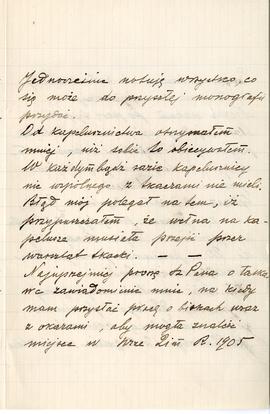 Jednocześnie notuję wszystko, co
się może do przyszłej monografii
przydać.
Od kapelusznictwa otrzymałem
mniej, niż sobie to obiecywałem.
W każdym bądź razie kapelusznicy
nic wspólnego z tkaczami nie mieli.
Błąd mój polegał na tem, iż
przypuszczałem, że wełna na ka-
pelusze musiała przejść przez
warsztat tkacki. — —
Najuprzejmiej proszę Sz Pana o łaska
we zawiadomienie mnie, na kiedy
mam przysłać pracę o blokach wraz
z okazami, aby mogła znaleźć
miejsce w R. 1905